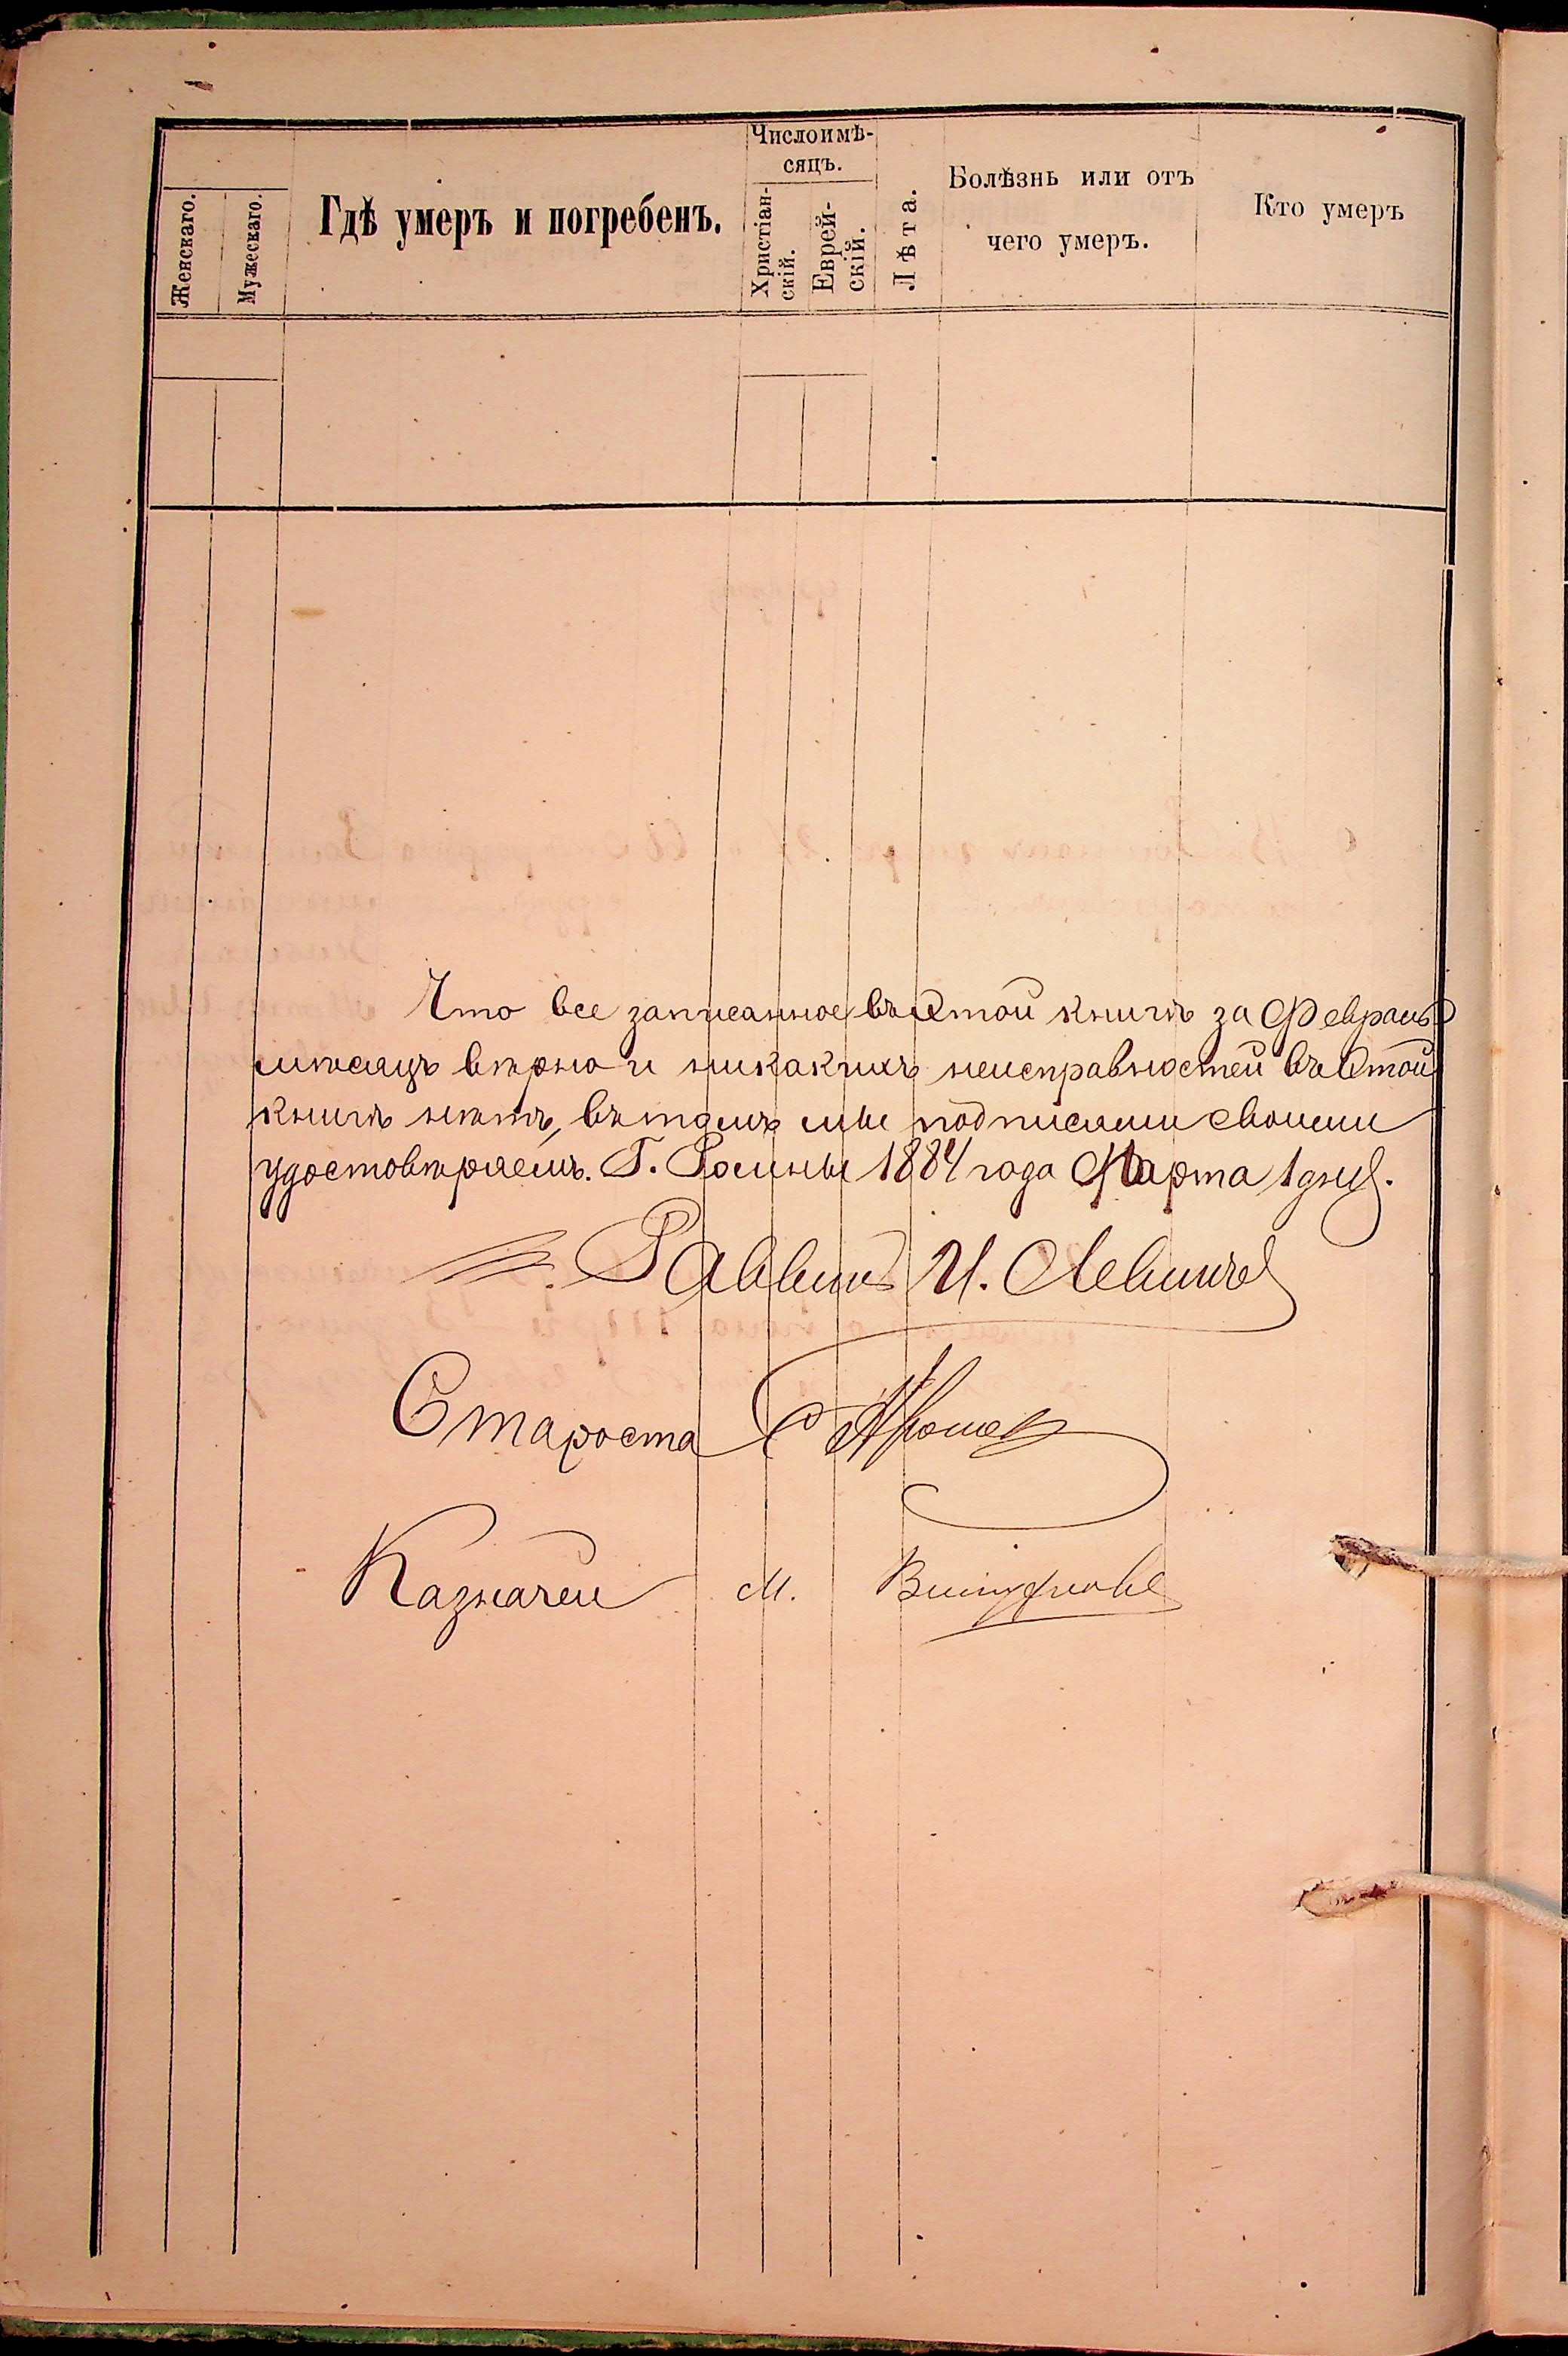 Женскаго.
Мужескаго.
Гдѣ умеръ и погребенъ.
Числоимѣ-
сяцъ.
Христіан-
скій.
Еврей-
скій.
Лѣта.
Болѣзнь или отъ
чего умеръ.
Кто умеръ
Что все записанное въ этой книгѣ за Февраль
мѣсяцъ вѣрно и никакихъ неисправностей въ этой
книгѣ нѣтъ, въ томъ мы подписями своими
удостовѣряемъ. Г. Ромны 1884 года Марта 1 дня.
Раввинъ И. Левинъ
Староста
Казначей М.